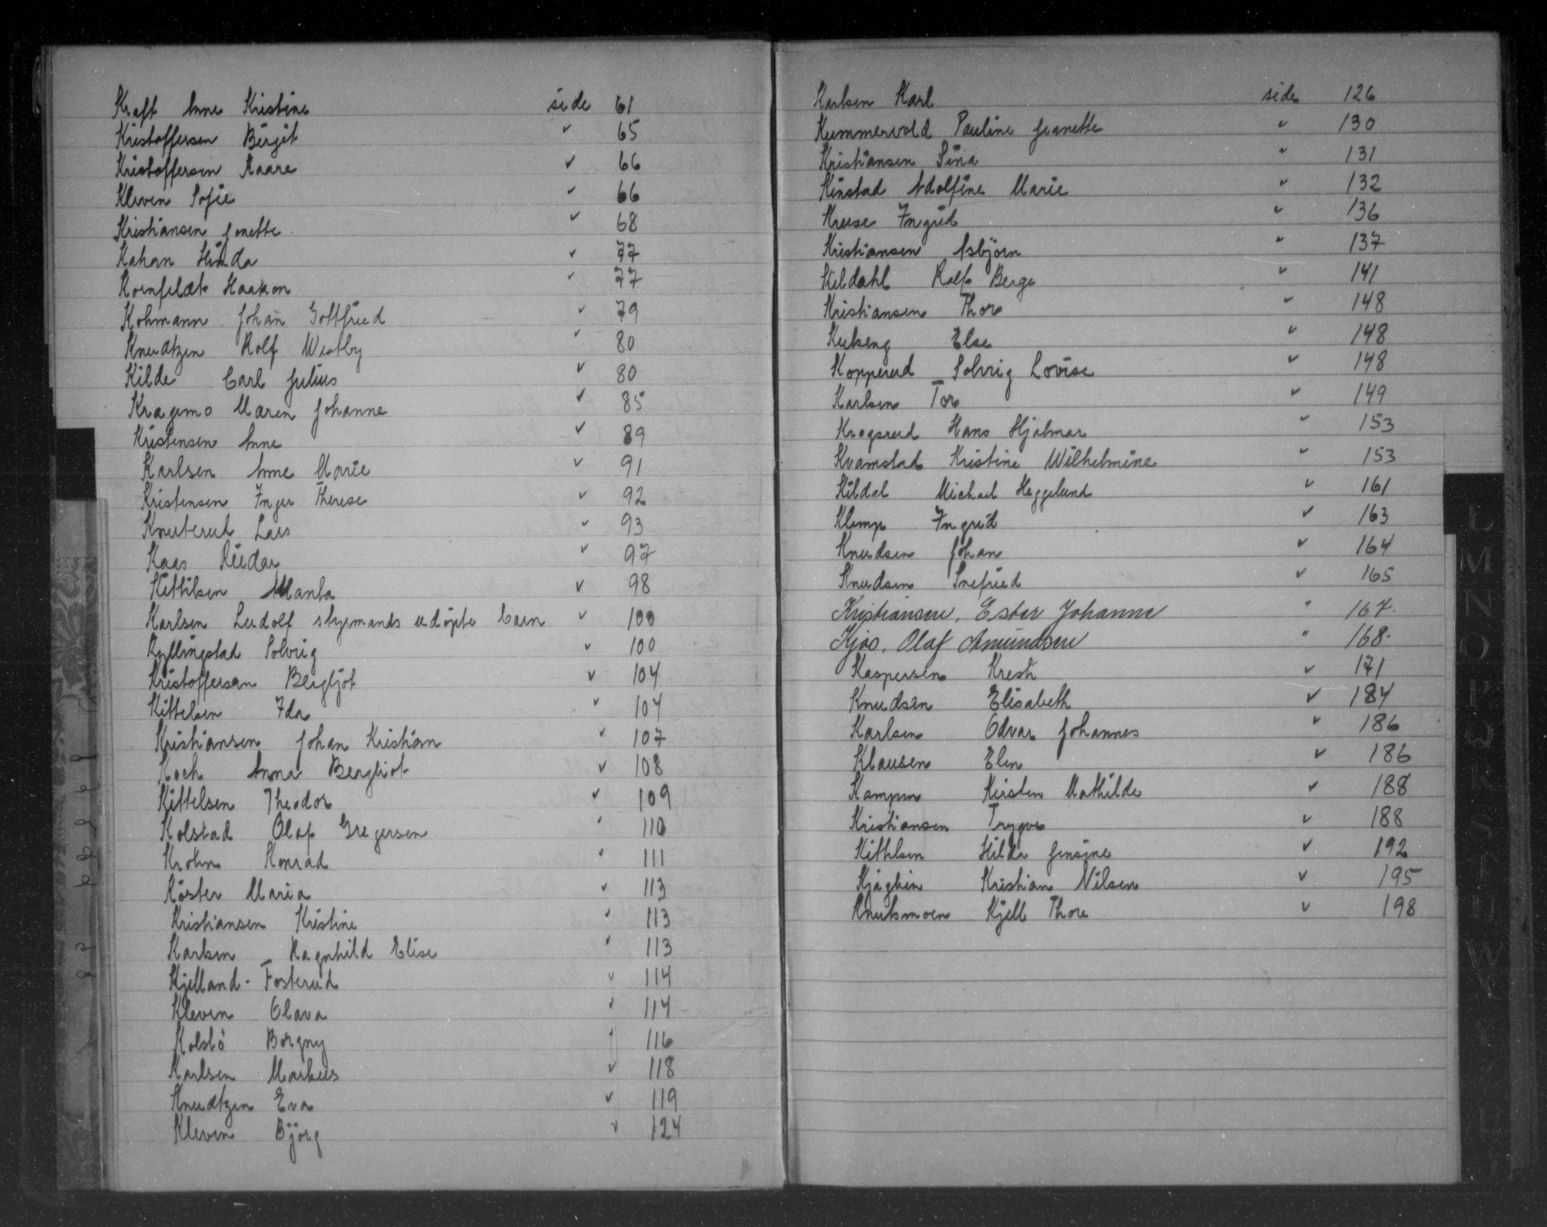 Kraft Anne Kristine side 61
Kristoffersen Birgit " 65
Kristoffersen Kaare " 66
Kleven Sofie " 66
Kristiansen Janette " 68
Kahan Hinda " 77
Kornfeldt Haakon " 77
Kohmann Johan Gottfried " 79
Knudtzen Rolf Westby " 80
Kilde Carl Julius " 80
Kragemo Maren Johanne " 85
Kristensen Anne " 89
Karlsen Anne Marie " 91
Kristensen Inger Therese " 92
Knuterud Lars " 93
Kaas Reidar " 97
Kittilsen Manta " 98
Karlsen Ludolf styrmands udöpte barn " 100
Kyllingstad Solveig " 100
Kristoffersen Bergljot " 104
Kittelsen Ida " 104
Kristiansen Johan Kristian " 107
Koch Anna Bergliot " 108
Kittelsen Theodor " 109
Kolstad Olaf Gregersen " 110
Krohn Konrad " 111
Köster Maria " 113
Kristiansen Kristine " 113
Karlsen Ragnhild Elise " 113
Kjelland-Fosterud " 114
Kleven Olava " 114
Kolstö Borgny " 116
Karlsen Markus " 118
Knudtzen Eva " 119
Kleven Björg " 124
Karlsen Karl side 126
Kummervold Pauline Jeanette " 130
Kristiansen Sina " 131
Kinstad Adolfine Marie " 132
Kruse Ingrid " 136
Kristiansen Asbjörn " 137
Kildahl Rolf Berge " 141
Kristiansen Thor " 148
Else " 148
Kopperud Solveig Lovise " 148
Karlsen Tor " 149
Krogsrud Hans Hjalmar " 153
Kvamstad Kristine Wilhelmine " 153
Kildal Michael Heggelund " 161
Klemp Ingrid " 163
Knudsen Johan " 164
Knudsen Snefrid " 165
Kristiansen, Ester Johanne " 167.
Kjos, Olaf Amundsen " 168.
Kaspersen Kresti " 171
Knudsen Elisabeth " 184
Karlsen Odvar Johannes " 186
Klausen Elen " 186
Kampen Kirsten Mathilde " 188
Kristiansen Trygve " 188
Kittilsen Hilda Jensine " 192
Kristian Nilsen " 195
Knutsmoen Kjell Thore " 198
L
M
N
O
P
Q
R